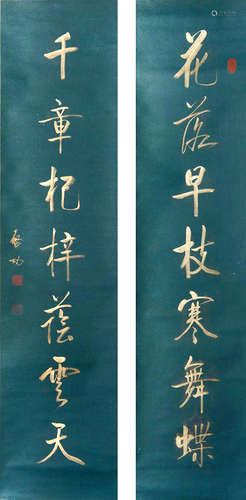 花落早枝寒舞蝶
千章杞梓蔭雲天
啟功